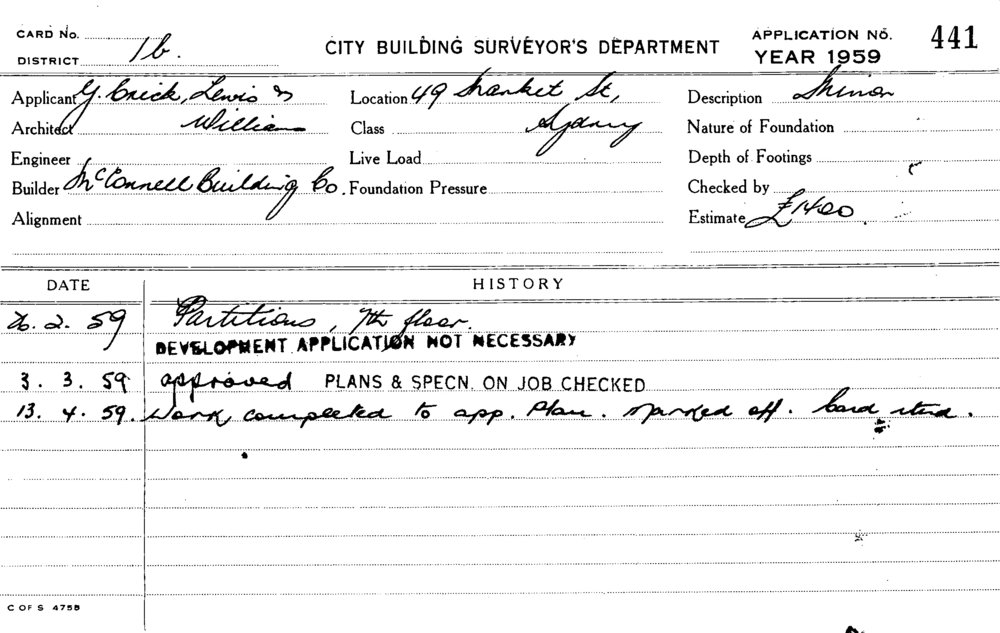 CARD No.
DISTRICT 1b.
CITY BUILDING SURVEYOR'S DEPARTMENT
APPLICATION No. 441
YEAR 1959
Applicant G. Crick, Lewis &
Location 49 Market St,
Description Minor
Architect Williams
Class Sydney
Nature of Foundation
Engineer
Live Load
Depth of Footings
Builder McConnell Building Co.
Foundation Pressure
Checked by
Alignment
Estimate £1400.
DATE HISTORY
26. 2. 59 Partitions, 7th floor.
DEVELOPMENT APPLICATION NOT NECESSARY
3. 3. 59 approved PLANS & SPECN. ON JOB CHECKED
13. 4. 59. Work completed to app. Plan. Marked off. Card rtnd.
C OF S 475B